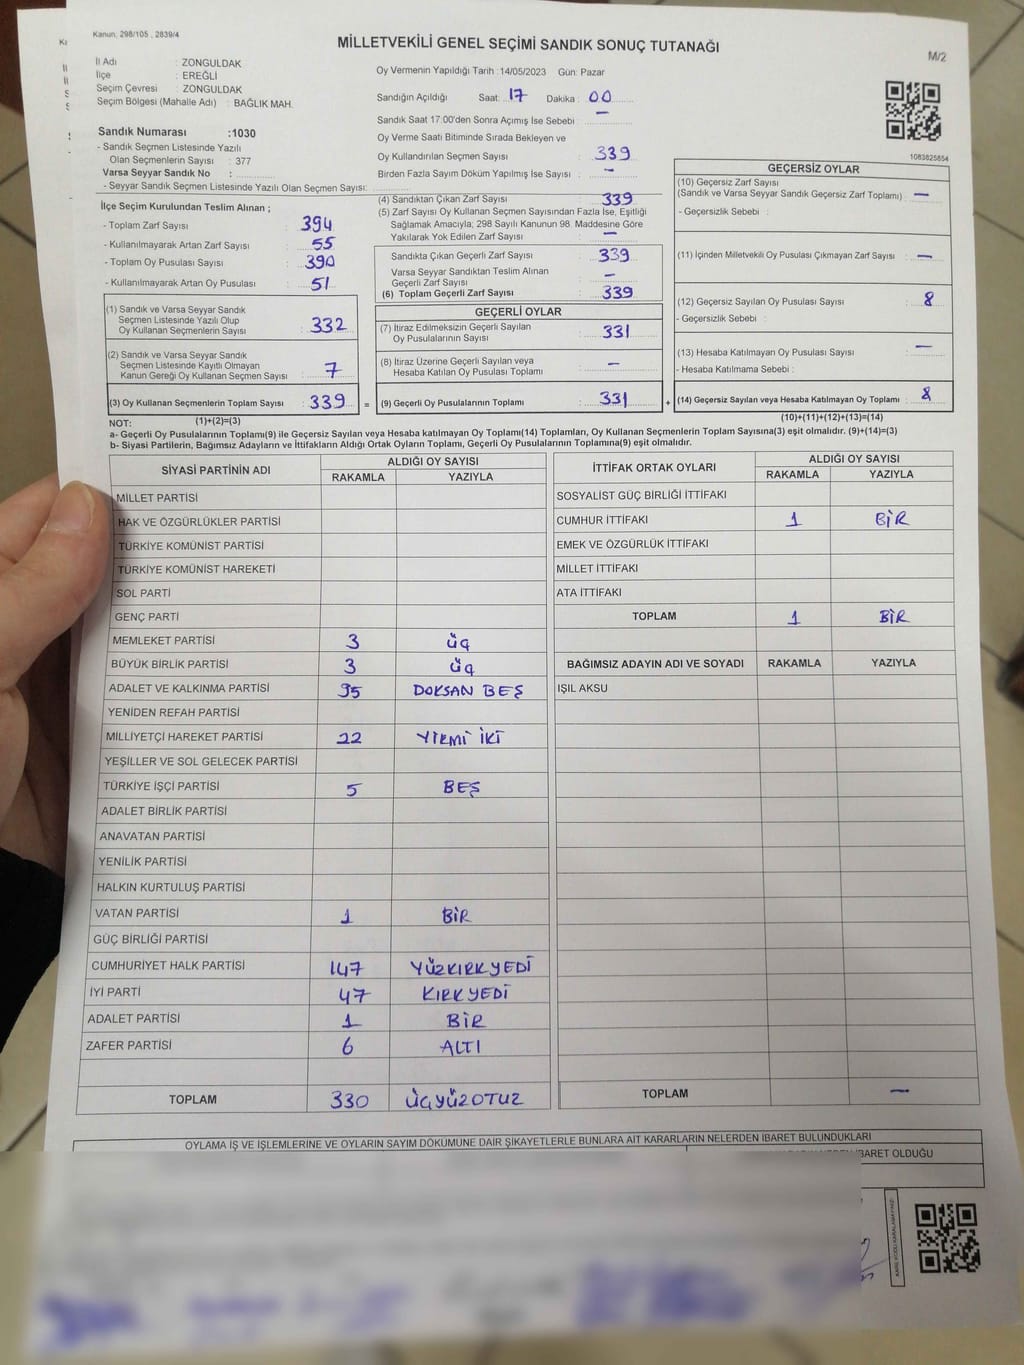 Kanun, 298/105 , 2839/4
MİLLETVEKİLİ GENEL SEÇİMİ SANDIK SONUÇ TUTANAĞI
M/2
İl Adı : ZONGULDAK
İlçe : EREĞLİ
Seçim Çevresi : ZONGULDAK
Seçim Bölgesi (Mahalle Adı) : BAĞLIK MAH.
Oy Vermenin Yapıldığı Tarih :14/05/2023 Gün: Pazar
Sandığın Açıldığı Saat: 17 Dakika : 00
Sandık Saat 17:00'den Sonra Açımış İse Sebebi : —
Oy Verme Saati Bitiminde Sırada Bekleyen ve
Oy Kullandırılan Seçmen Sayısı : 339
Birden Fazla Sayım Döküm Yapılmış İse Sayısı : —
1083825854
Sandık Numarası :1030
- Sandık Seçmen Listesinde Yazılı
Olan Seçmenlerin Sayısı : 377
Varsa Seyyar Sandık No :
- Seyyar Sandık Seçmen Listesinde Yazılı Olan Seçmen Sayısı:
İlçe Seçim Kurulundan Teslim Alınan ;
- Toplam Zarf Sayısı : 394
- Kullanılmayarak Artan Zarf Sayısı : 55
- Toplam Oy Pusulası Sayısı : 390
- Kullanılmayarak Artan Oy Pusulası : 51
(1) Sandık ve Varsa Seyyar Sandık
Seçmen Listesinde Yazılı Olup
Oy Kullanan Seçmenlerin Sayısı : 332
(2) Sandık ve Varsa Seyyar Sandık
Seçmen Listesinde Kayıtlı Olmayan
Kanun Gereği Oy Kullanan Seçmen Sayısı : 7
(3) Oy Kullanan Seçmenlerin Toplam Sayısı : 339
=
(4) Sandıktan Çıkan Zarf Sayısı : 339
(5) Zarf Sayısı Oy Kullanan Seçmen Sayısından Fazla İse, Eşitliği
Sağlamak Amacıyla; 298 Sayılı Kanunun 98. Maddesine Göre
Yakılarak Yok Edilen Zarf Sayısı : —
Sandıkta Çıkan Geçerli Zarf Sayısı : 339
Varsa Seyyar Sandıktan Teslim Alınan
Geçerli Zarf Sayısı : —
(6) Toplam Geçerli Zarf Sayısı : 339
GEÇERLİ OYLAR
(7) İtiraz Edilmeksizin Geçerli Sayılan
Oy Pusulalarının Sayısı : 331
(8) İtiraz Üzerine Geçerli Sayılan veya
Hesaba Katılan Oy Pusulası Toplamı : —
(9) Geçerli Oy Pusulalarının Toplamı : 331
+
GEÇERSİZ OYLAR
(10) Geçersiz Zarf Sayısı
(Sandık ve Varsa Seyyar Sandık Geçersiz Zarf Toplamı) : —
- Geçersizlik Sebebi :
(11) İçinden Milletvekili Oy Pusulası Çıkmayan Zarf Sayısı : —
(12) Geçersiz Sayılan Oy Pusulası Sayısı : 8
- Geçersizlik Sebebi :
(13) Hesaba Katılmayan Oy Pusulası Sayısı : —
- Hesaba Katılmama Sebebi :
(14) Geçersiz Sayılan veya Hesaba Katılmayan Oy Toplamı : 8
NOT: (1)+(2)=(3) (10)+(11)+(12)+(13)=(14)
a- Geçerli Oy Pusulalarının Toplamı(9) ile Geçersiz Sayılan veya Hesaba katılmayan Oy Toplamı(14) Toplamları, Oy Kullanan Seçmenlerin Toplam Sayısına(3) eşit olmalıdır. (9)+(14)=(3)
b- Siyasi Partilerin, Bağımsız Adayların ve İttifakların Aldığı Ortak Oyların Toplamı, Geçerli Oy Pusulalarının Toplamına(9) eşit olmalıdır.
SİYASİ PARTİNİN ADI ALDIĞI OY SAYISI
RAKAMLA YAZIYLA
MİLLET PARTİSİ
HAK VE ÖZGÜRLÜKLER PARTİSİ
TÜRKİYE KOMÜNİST PARTİSİ
TÜRKİYE KOMÜNİST HAREKETİ
SOL PARTİ
GENÇ PARTİ
MEMLEKET PARTİSİ 3 ÜÇ
BÜYÜK BİRLİK PARTİSİ 3 ÜÇ
ADALET VE KALKINMA PARTİSİ 95 DOKSAN BEŞ
YENİDEN REFAH PARTİSİ
MİLLİYETÇİ HAREKET PARTİSİ 22 YİRMİ İKİ
YEŞİLLER VE SOL GELECEK PARTİSİ
TÜRKİYE İŞÇİ PARTİSİ 5 BEŞ
ADALET BİRLİK PARTİSİ
ANAVATAN PARTİSİ
YENİLİK PARTİSİ
HALKIN KURTULUŞ PARTİSİ
VATAN PARTİSİ 1 BİR
GÜÇ BİRLİĞİ PARTİSİ
CUMHURİYET HALK PARTİSİ 147 YÜZKIRKYEDİ
İYİ PARTİ 47 KIRKYEDİ
ADALET PARTİSİ 1 BİR
ZAFER PARTİSİ 6 ALTI
TOPLAM 330 ÜÇYÜZOTUZ
İTTİFAK ORTAK OYLARI ALDIĞI OY SAYISI
RAKAMLA YAZIYLA
SOSYALİST GÜÇ BİRLİĞİ İTTİFAKI
CUMHUR İTTİFAKI 1 BİR
EMEK VE ÖZGÜRLÜK İTTİFAKI
MİLLET İTTİFAKI
ATA İTTİFAKI
TOPLAM 1 BİR
BAĞIMSIZ ADAYIN ADI VE SOYADI RAKAMLA YAZIYLA
IŞIL AKSU
TOPLAM —
OYLAMA İŞ VE İŞLEMLERİNE VE OYLARIN SAYIM DÖKÜMÜNE DAİR ŞİKAYETLERLE BUNLARA AİT KARARLARIN NELERDEN İBARET BULUNDUKLARI
İBARET OLDUĞU